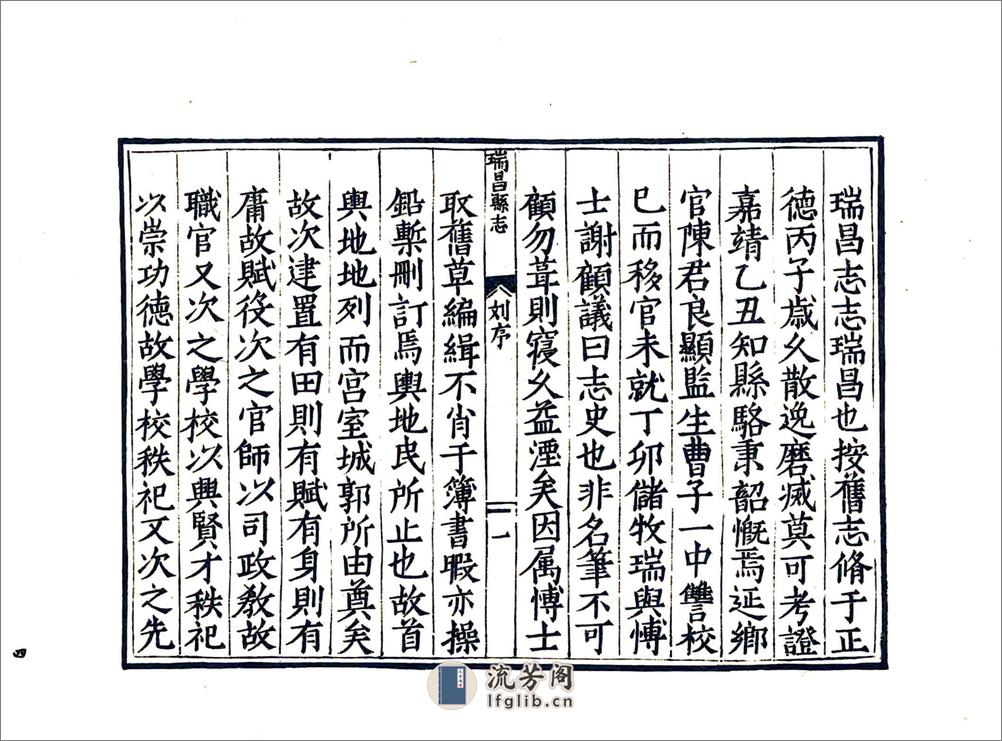 瑞昌志志瑞昌也按舊志脩于正
德丙子歳乆散逸磨滅莫可考證
嘉靖乙丑知縣駱秉韶慨焉延鄉
官陳君良顯監生曹子一中讐校
巳而移官未就丁卯儲牧瑞與愽
士謝顧議曰志史也非名筆不可
顧勿葺則寖乆益湮矣因属愽士
瑞昌縣志
刘序
一
取舊草編緝不肖于簿書暇亦操
鉛槧刪訂焉輿地民所止也故首
輿地地列而宫室城郭所由奠矣
故次建置有田則有賦有身則有
庸故賦役次之官師以司政教故
職官又次之學校以興賢才秩祀
以崇功德故學校秩祀又次之先
四
流芳阁
lfglib.cn